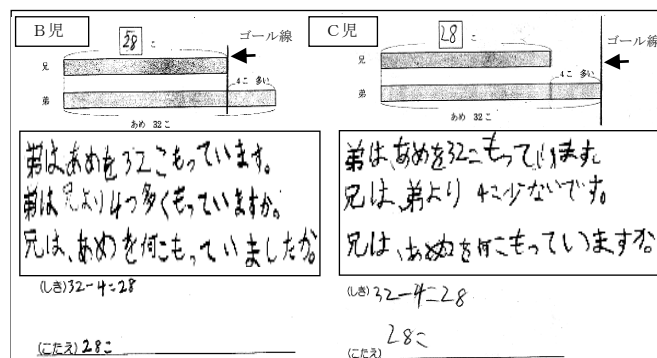 B児
28 こ
ゴール線
兄
4こ 多い
弟
あめ 32こ
弟はあめを32こもっています。
弟は兄より4つ多くもっていますか。
兄は、あめを何こもっていましたか。
(しき) 32-4=28
(こたえ) 28こ
C児
28 こ
ゴール線
兄
4こ 多い
弟
あめ 32こ
弟は、あめを32こもっています。
兄は、弟より4こ少ないです。
兄は、あめを何こもっていますか。
(しき) 32-4=28
28こ
(こたえ)